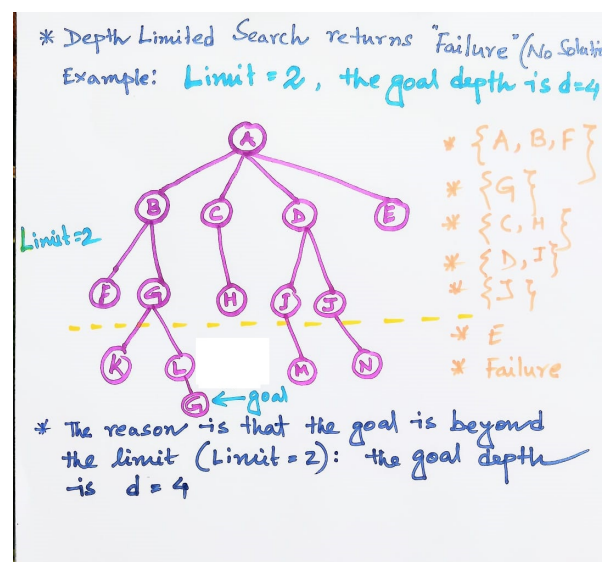 * Depth Limited Search returns "Failure" (No Soluti
Example: Limit = 2, the goal depth is d=4
A
B C D E
Limit=2
F G H I J
K L M N
G ← goal
* {A, B, F}
* {G}
* {C, H}
* {D, I}
* {J}
* E
* Failure
* The reason is that the goal is beyond
the limit (Limit = 2): the goal depth
is d = 4